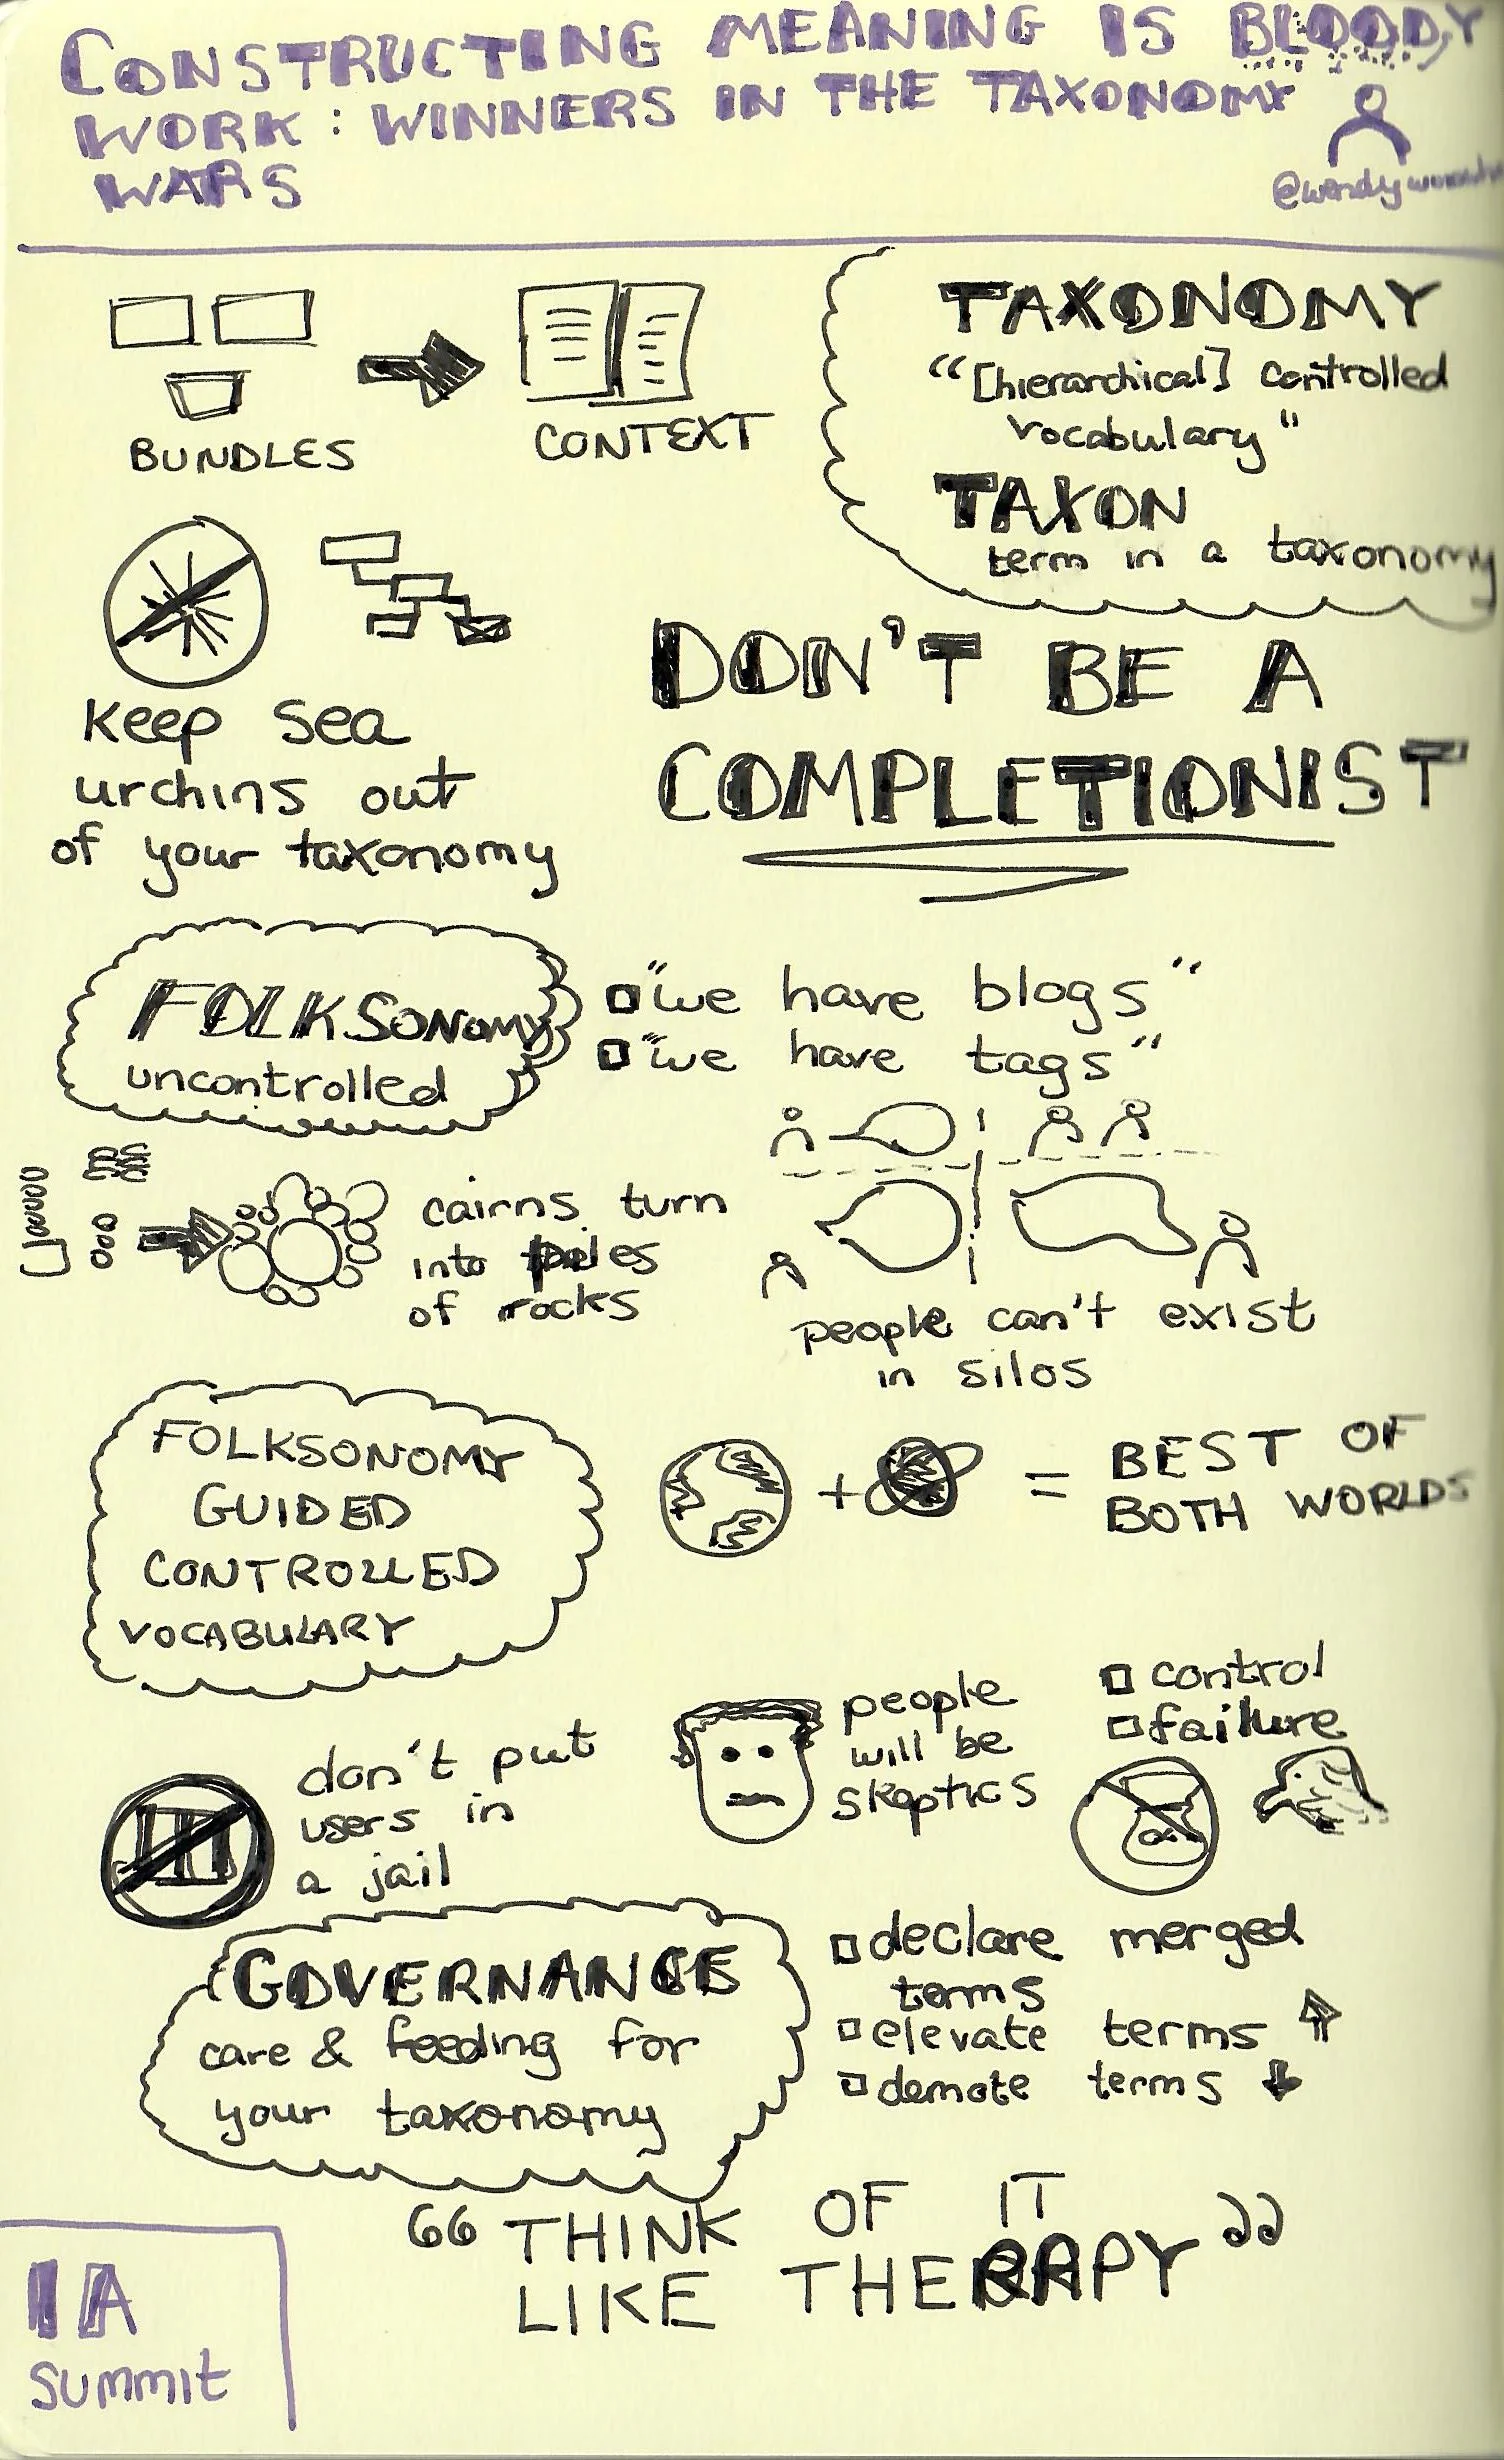 CONSTRUCTING MEANING IS BLOODY
WORK: WINNERS IN THE TAXONOMY
WARS
BUNDLES
CONTEXT
TAXONOMY
"[hierarchical] controlled
vocabulary"
TAXON
term in a taxonomy
keep sea
urchins out
of your taxonomy
DON'T BE A
COMPLETIONIST
FOLKSONOMY
uncontrolled
"we have blogs"
"we have tags"
cairns turn
into piles
of rocks
people can't exist
in silos
FOLKSONOMY
GUIDED
CONTROLLED
VOCABULARY
+ = BEST OF
BOTH WORLDS
don't put
users in
a jail
people
will be
skeptics
control
failure
GOVERNANCE
care & feeding for
your taxonomy
declare merged
terms
elevate terms
demote terms
"THINK OF IT
LIKE THERAPY"
IA
summit